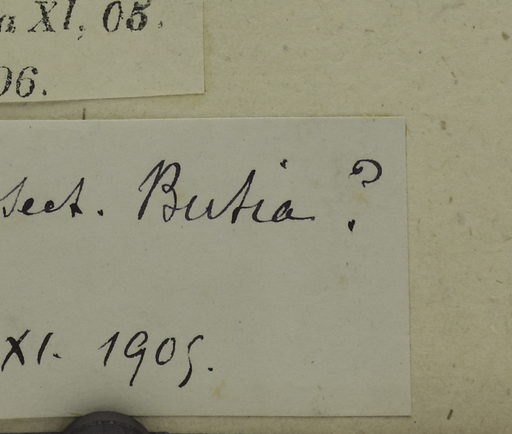 a XI, 05.
06.
sect. Butia ?
XI. 1905.